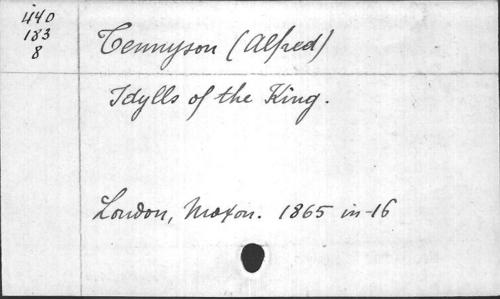 440
183
8
Tennyson (Alfred)
Idylls of the King.
London, Moxon. 1865 in-16